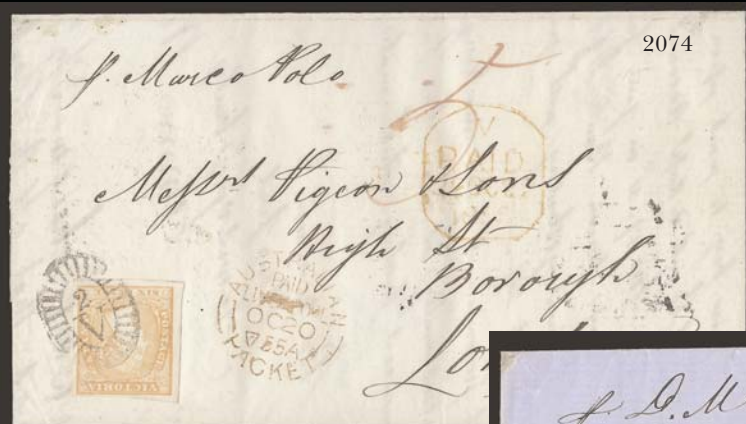 2074
p. Marco Polo
5
V
PAID
Messrs Pigeon & Sons
High St
Borough
Lon
AUSTRALIAN
PAID
LIVERPOOL
OC 20
55 A
PACKET
2
V
POSTAGE
SIX
VICTORIA
p. D. M